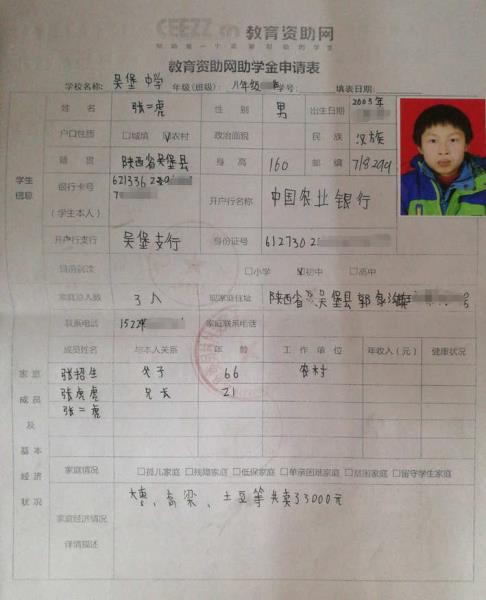 CEEZZ.cn 教育资助网
教育资助网助学金申请表
学校名称: 吴堡中学 年级(班级): 八年级 学号: 填表日期:
姓名 张二虎 性别 男 出生日期 2003年
户口性质 □城镇 农村 政治面貌 民族 汉族
籍贯 陕西省吴堡县 身高 160 邮编 718299
学生信息
银行卡号(学生本人) 621336 2 7 开户行名称 中国农业银行
开户行支行 吴堡支行 身份证号 612730 2
目前就读 □小学 初中 □高中
家庭总人数 3人 现家庭住址 陕西省 吴堡县郭家 号
联系电话 1522 家庭联系电话
成员姓名 与本人关系 年龄 工作单位 年收入(元) 健康状况
张招生 父子 66 农村
张虎虎 兄长 21
张二虎
家庭成员及基本经济状况
家庭情况 □孤儿家庭 □残障家庭 □低保家庭 □单亲困难家庭 □贫困家庭 □留守学生家庭
家庭经济情况详情描述 枣、高梁、土豆等共卖33000元